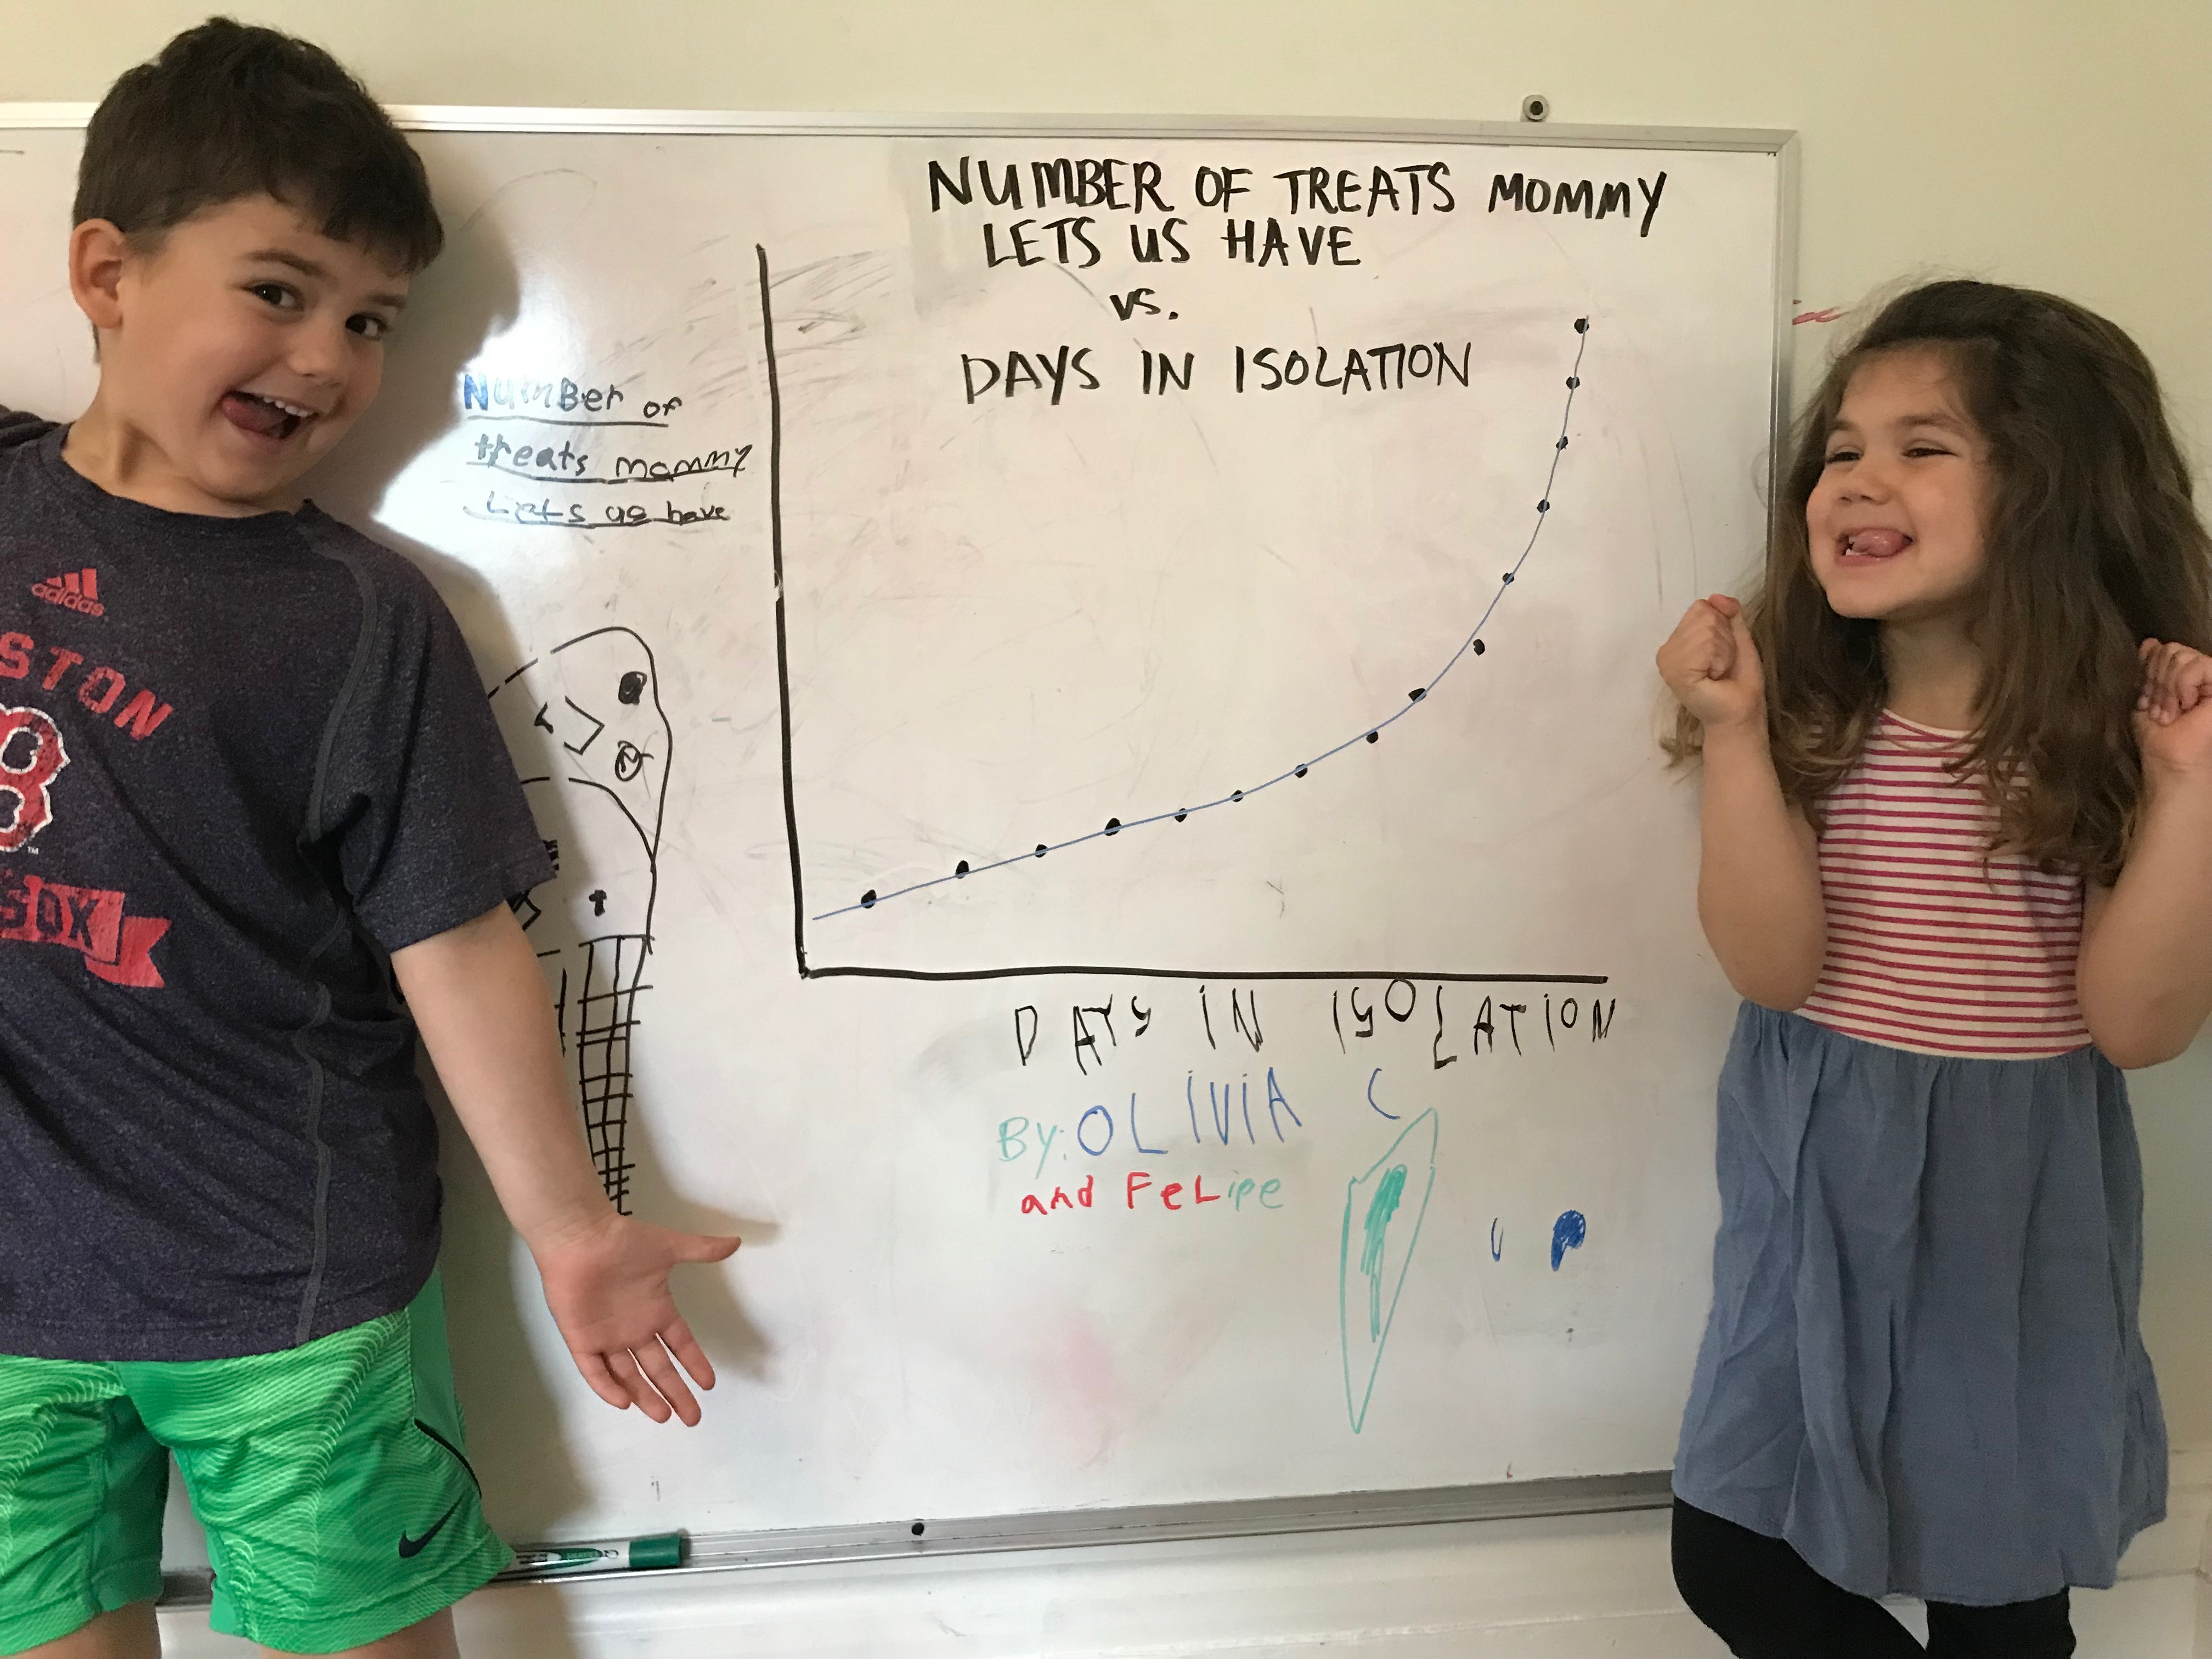 NUMBER OF TREATS MOMMY
LETS US HAVE
vs.
DAYS IN ISOLATION
NumBer of
treats mommy
Lets us have
DAYS IN ISOLATION
By: OLIVIA C
and FeLipe
adidas
STON
B
TM
SOX